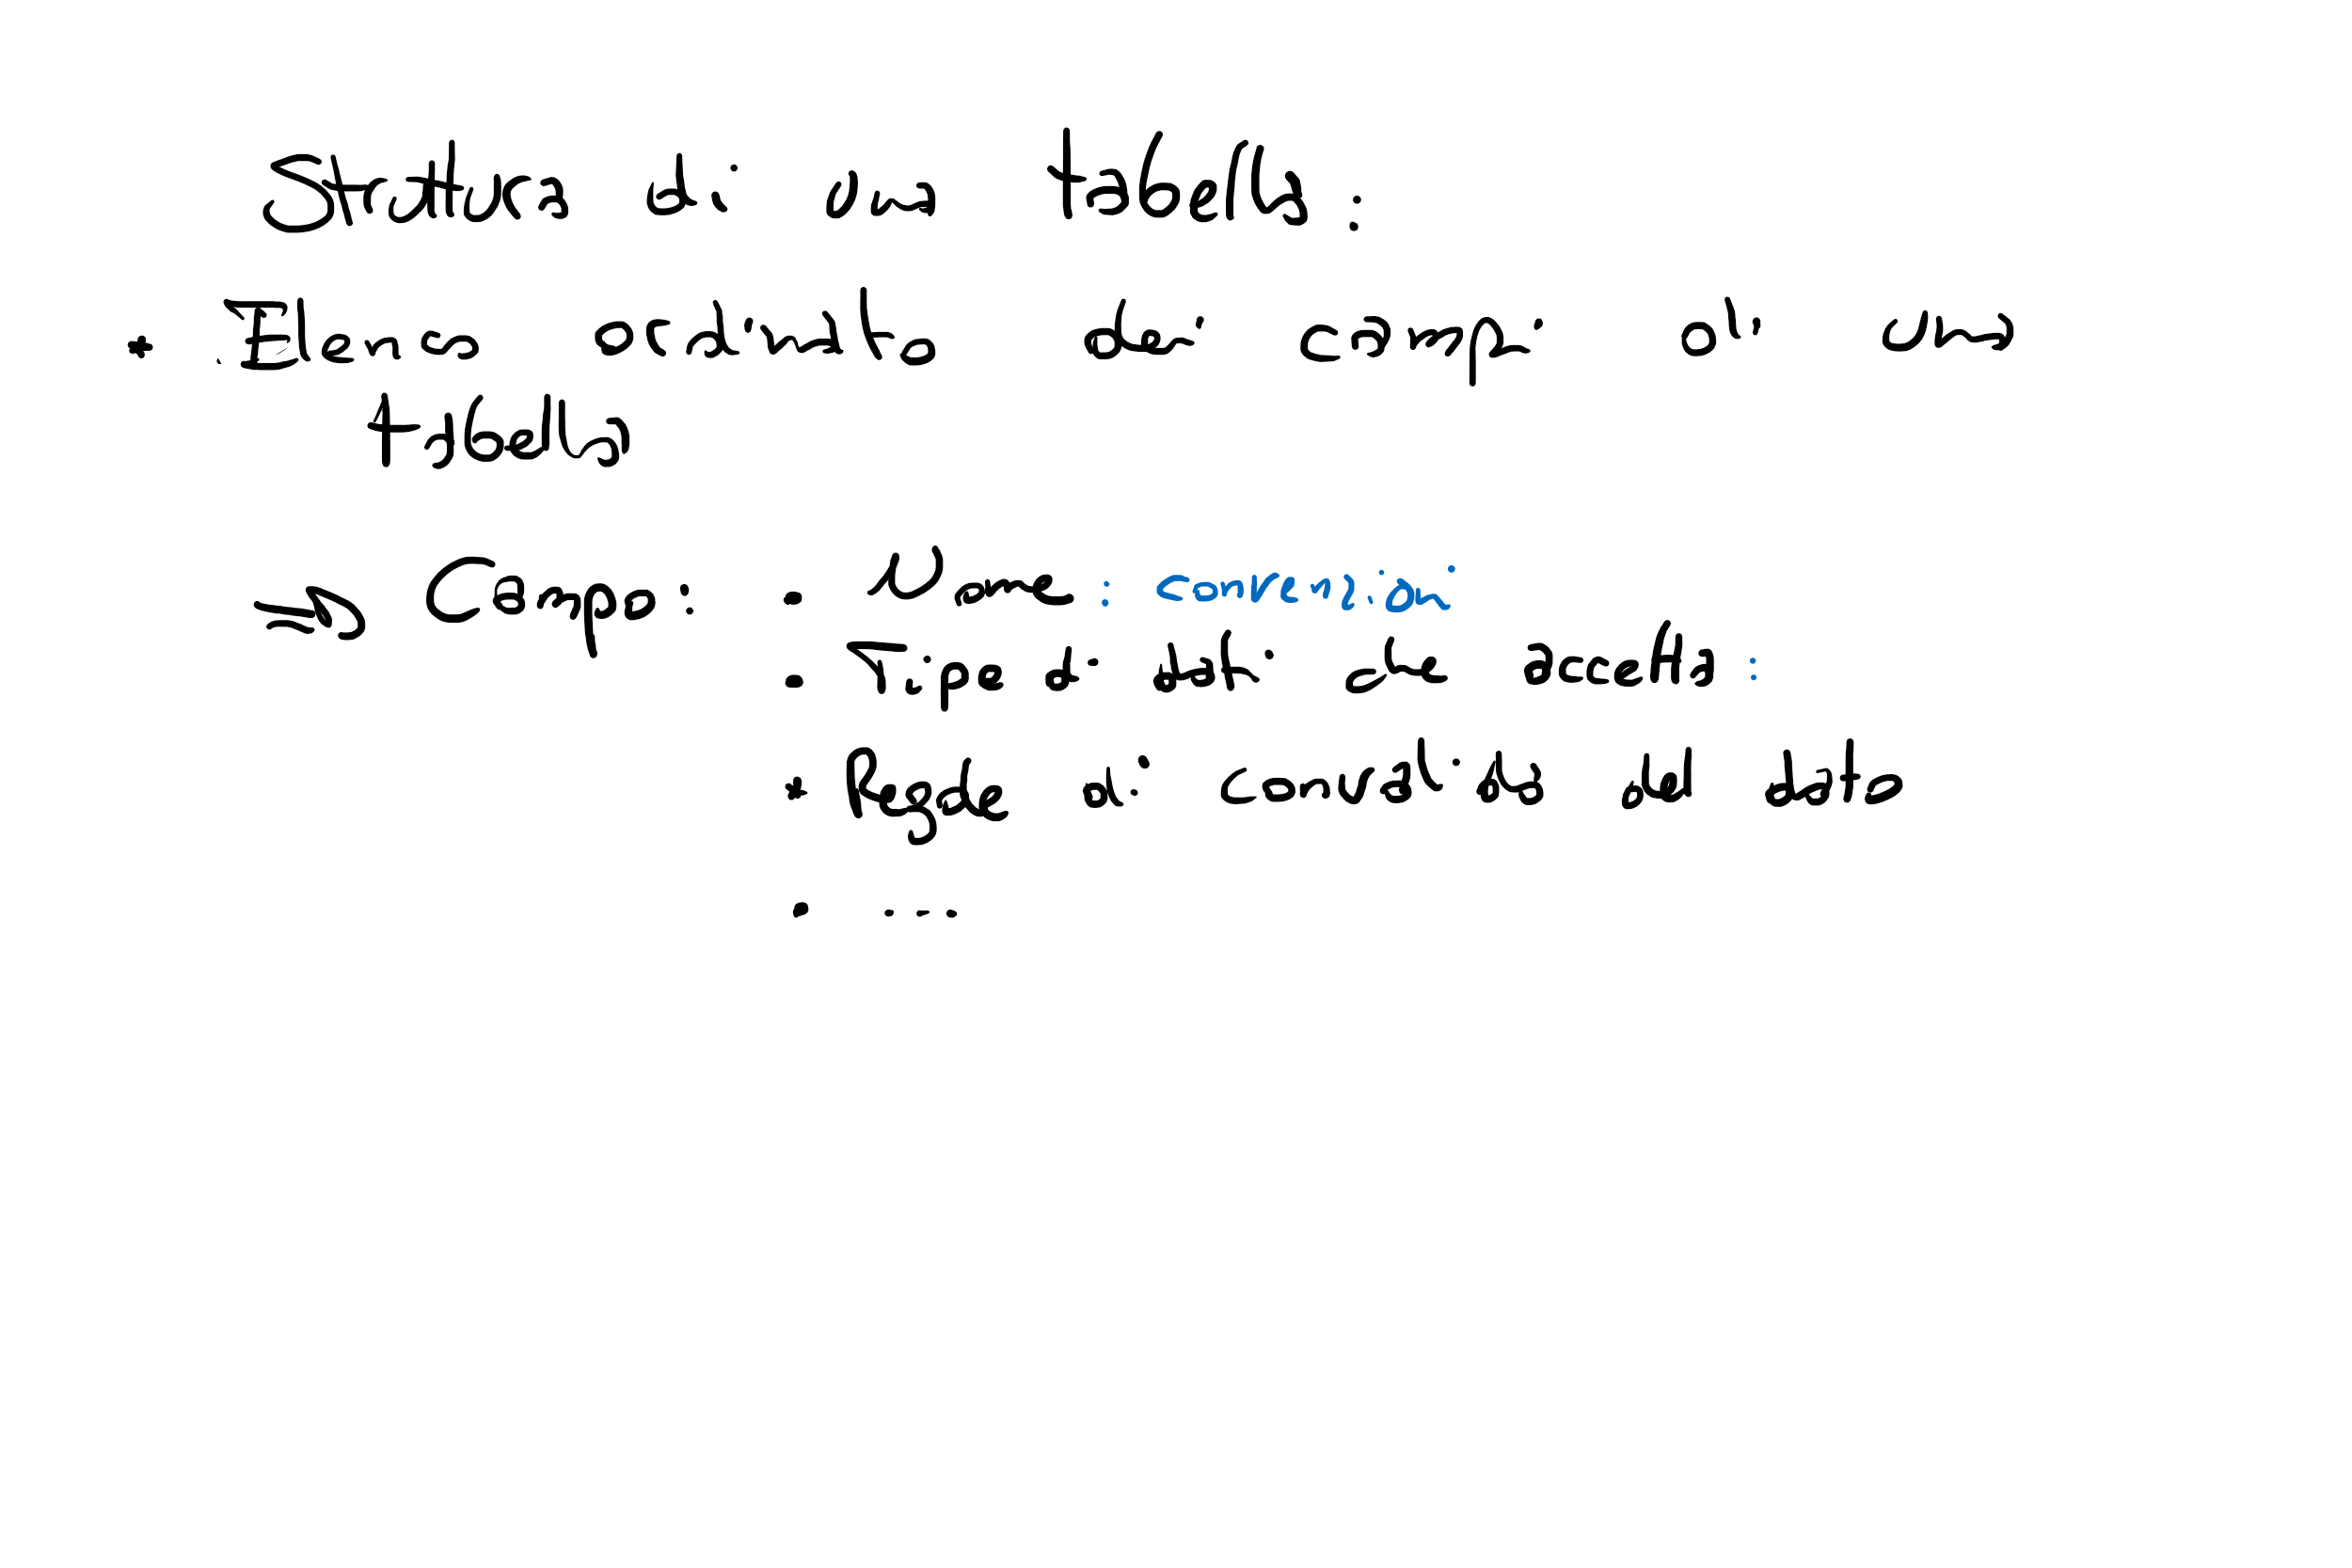 Struttura di una tabella:
• Elenco ordinato dei campi di una
tabella
=> Campo: • Nome: convenzioni
• Tipo di dati che accetta:
• Regole di convalida del dato
• ...